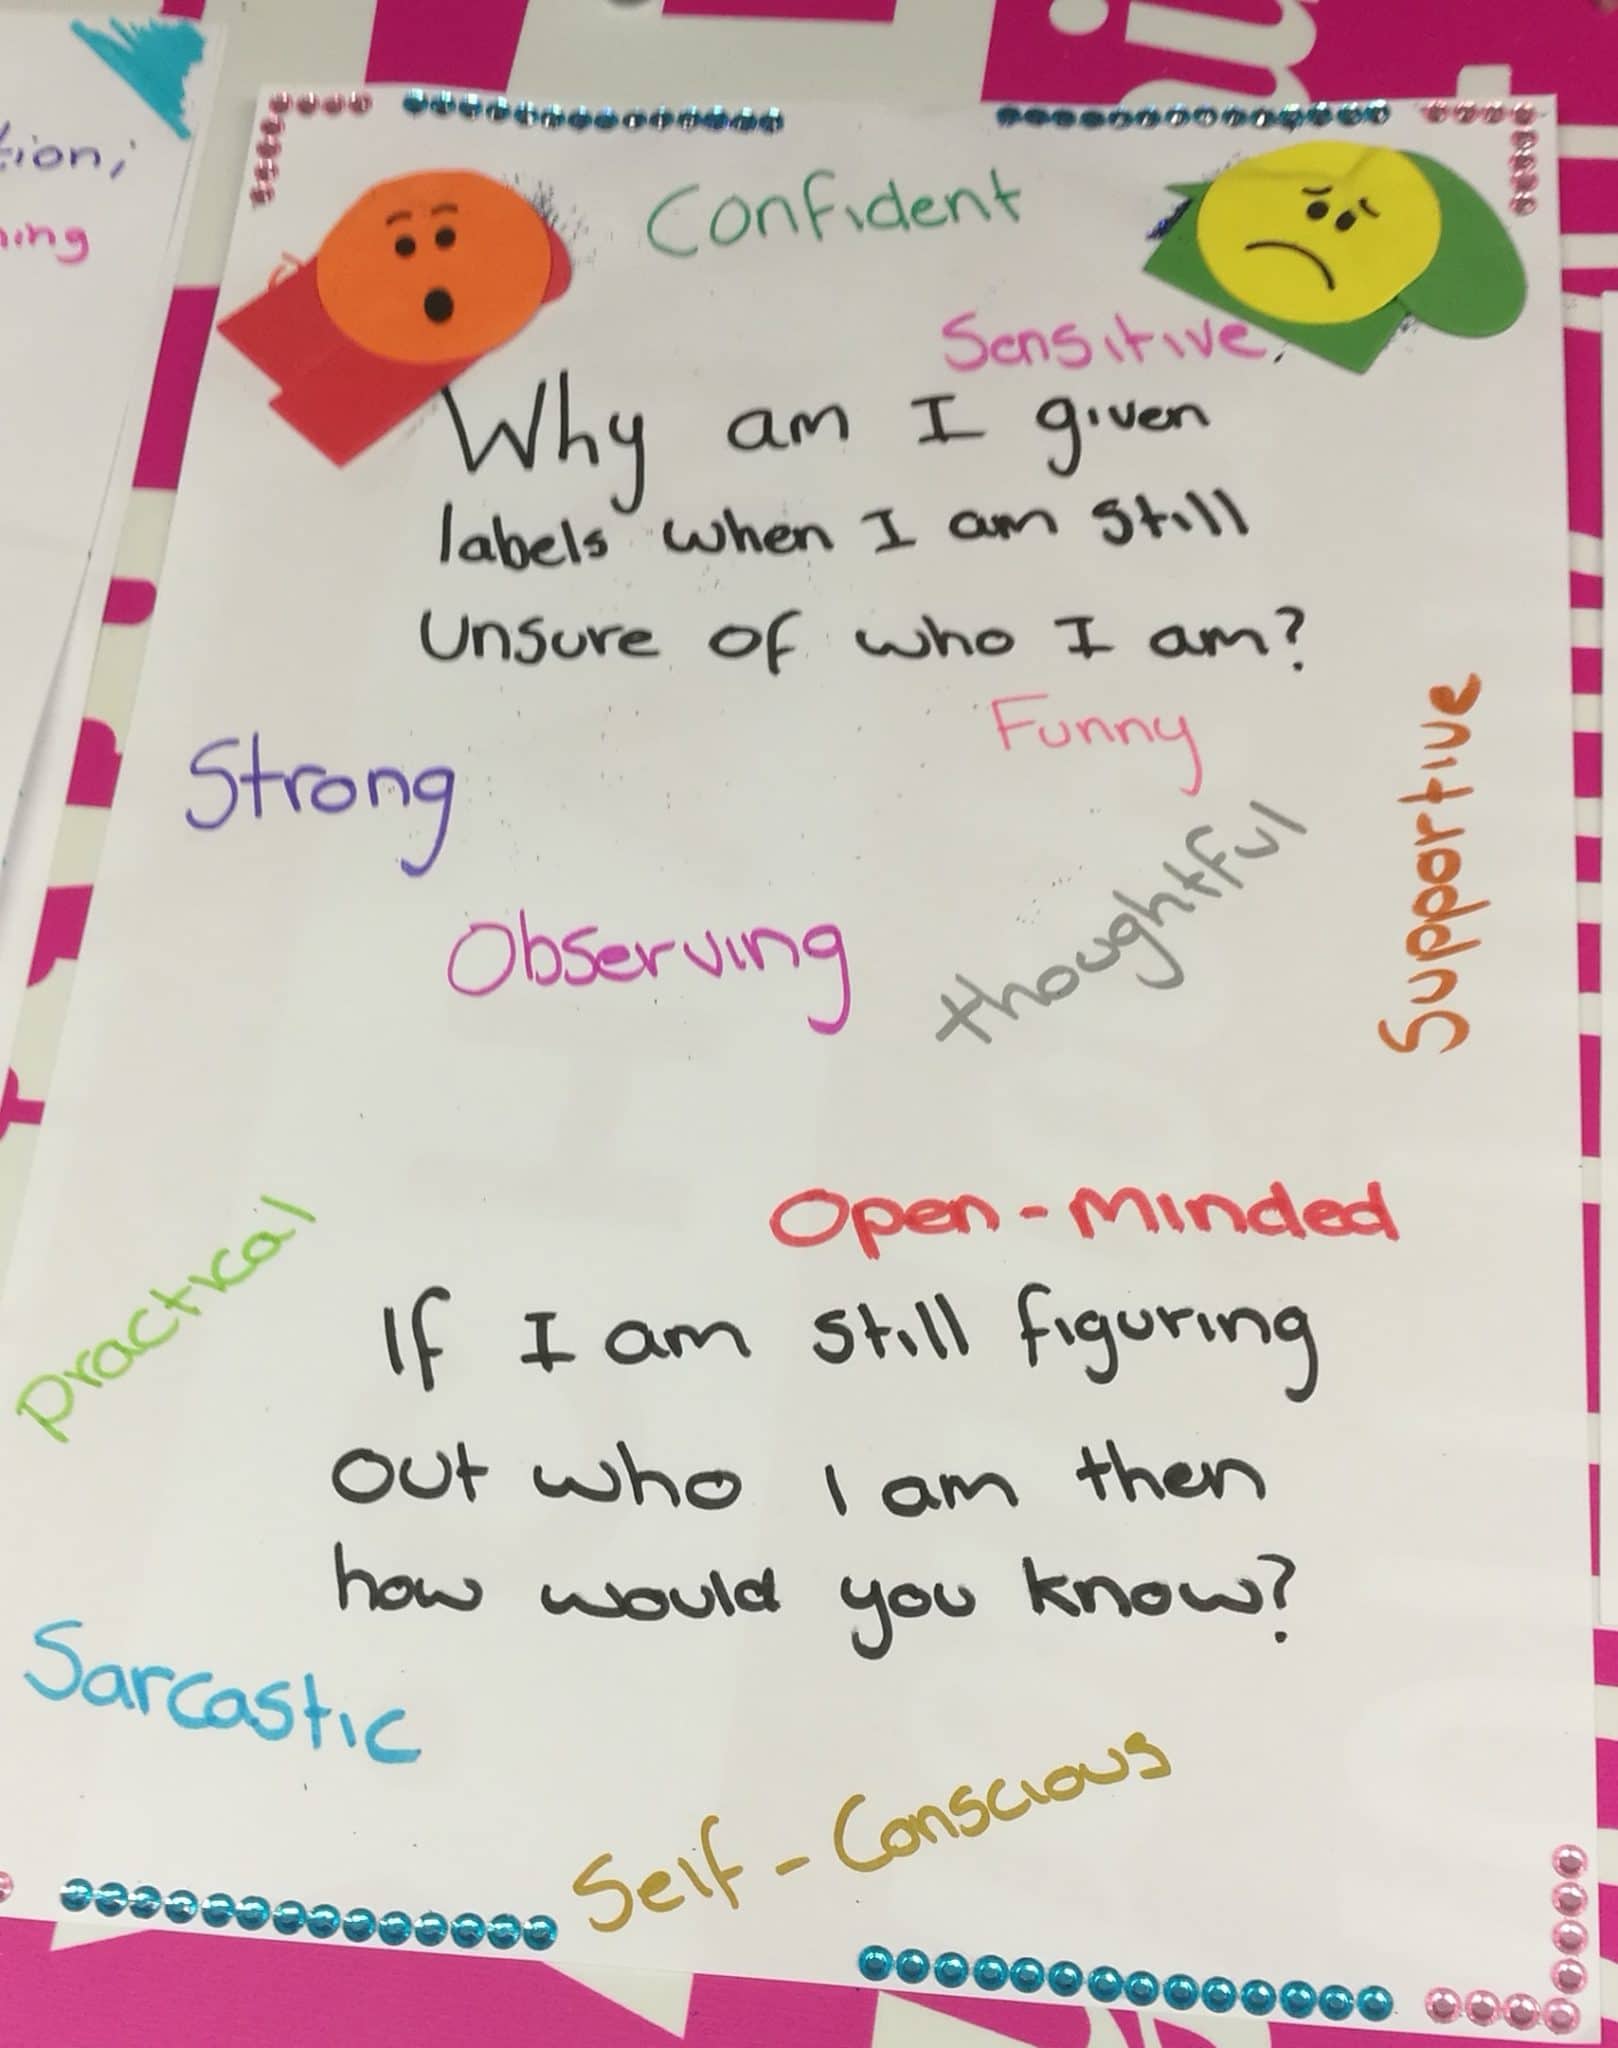 tion;
ning
Confident
Sensitive.
Why am I given
labels when I am still
Unsure of who I am?
Funny
Strong
Supportive
thoughtful
Observing
Open-Minded
Practical
If I am still figuring
out who I am then
how would you know?
Sarcastic
Self-Conscious